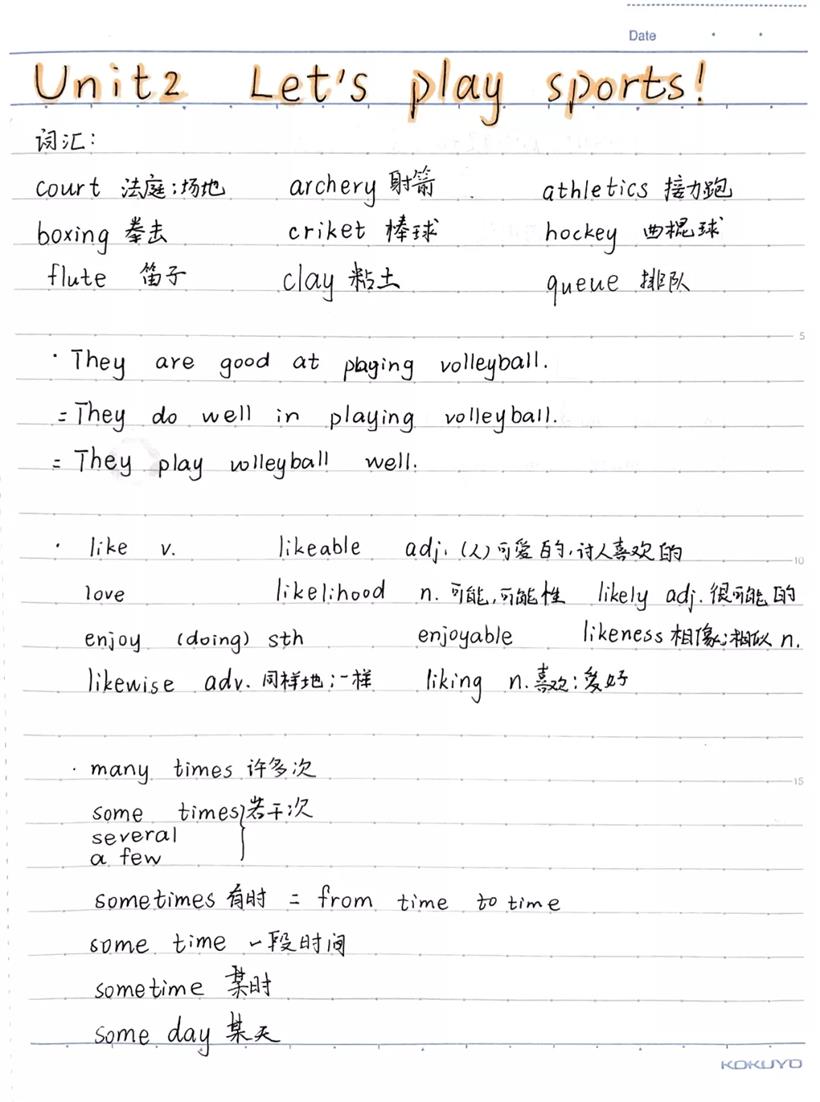 Date
Unit2 Let's play sports!
词汇:
court 法庭;场地 archery 射箭 athletics 接力跑
boxing 拳击 criket 棒球 hockey 曲棍球
flute 笛子 clay 粘土 queue 排队
5
· They are good at playing volleyball.
= They do well in playing volleyball.
= They play volleyball well.
· like v. likeable adj. (人)可爱的,讨人喜欢的
10
love likelihood n. 可能,可能性 likely adj. 很可能的
enjoy (doing) sth enjoyable likeness 相像;相似 n.
likewise adv. 同样地;一样 liking n. 喜欢;爱好
· many times 许多次
15
some times}若干次
several
a few
sometimes 有时 = from time to time
some time 一段时间
sometime 某时
some day 某天
KOKUYO